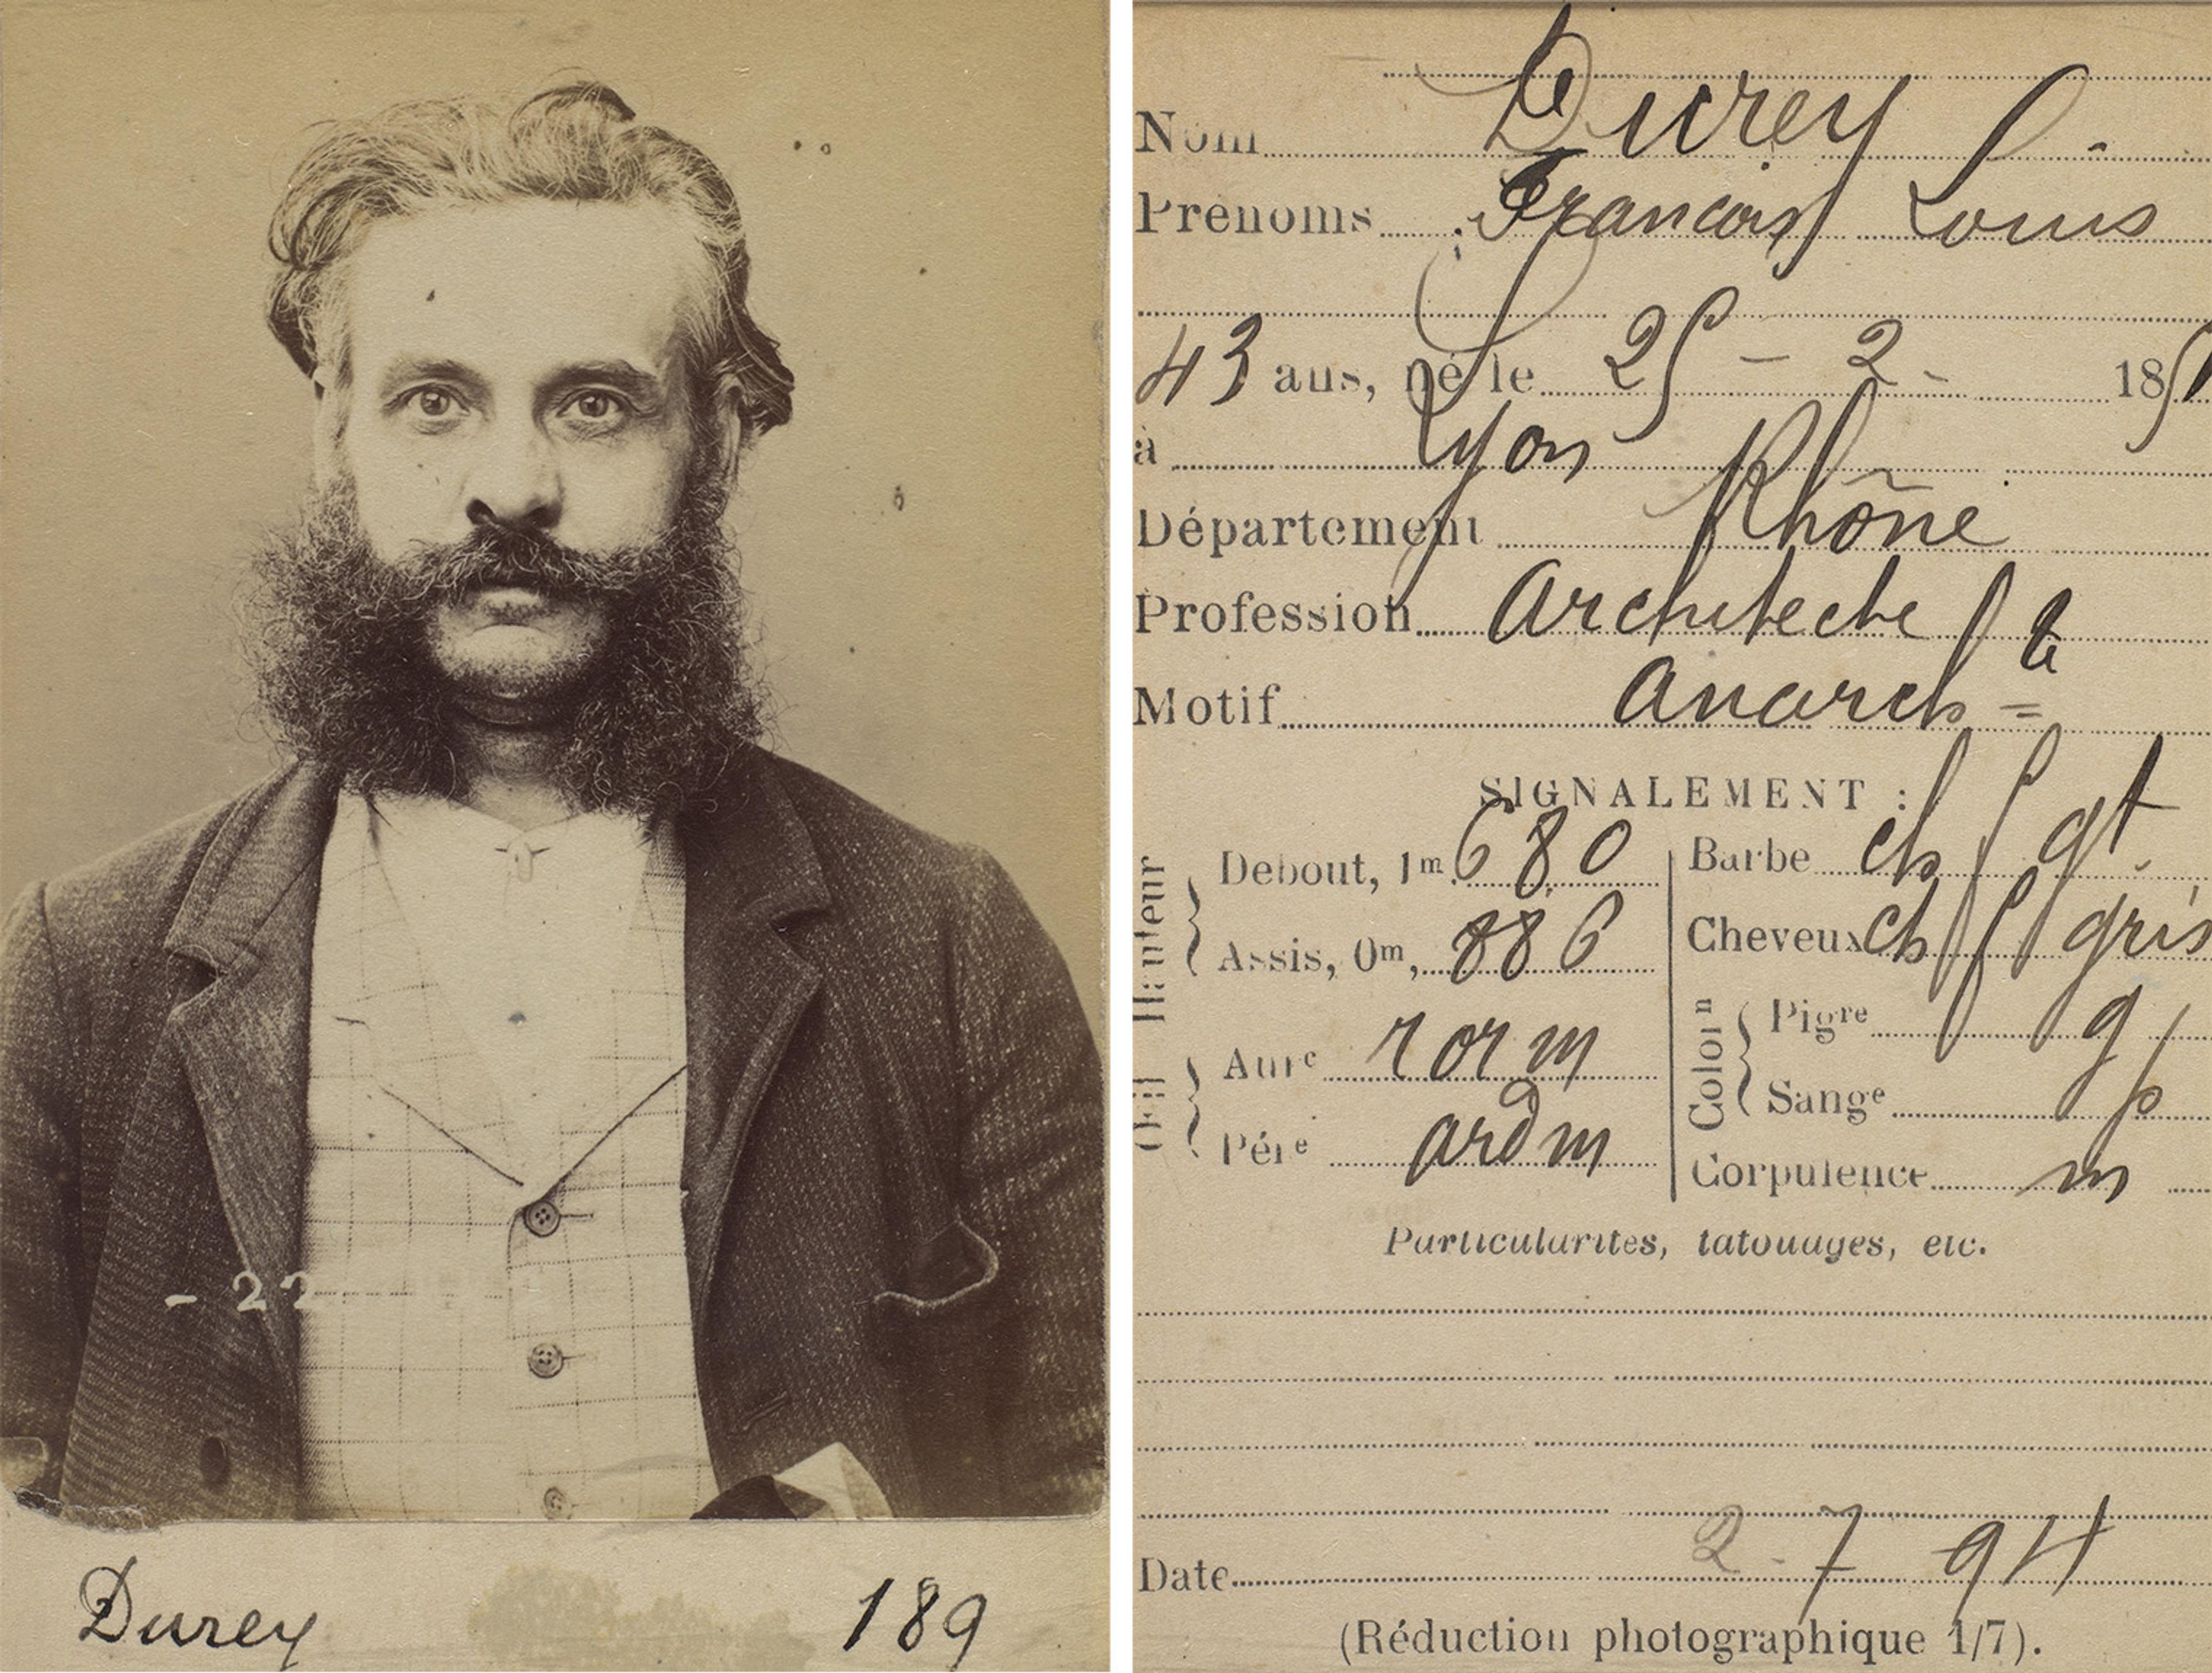 - 22
Durey 189
Nom Durey
Prénoms François Louis
43 ans, né le 25 - 2 - 1851
à Lyon
Département Rhône
Profession Architecte
Motif anarch
SIGNALEMENT :
Hauteur
Debout, 1m 680
Assis, 0m, 886
Œil
Aure r or m
Pére ard m
Barbe ch gt
Cheveux ch gris
Colorn
Pigre g
Sange p
Corpulence m
Particularites, tatouages, etc.
Date 2-7 94
(Réduction photographique 1/7).